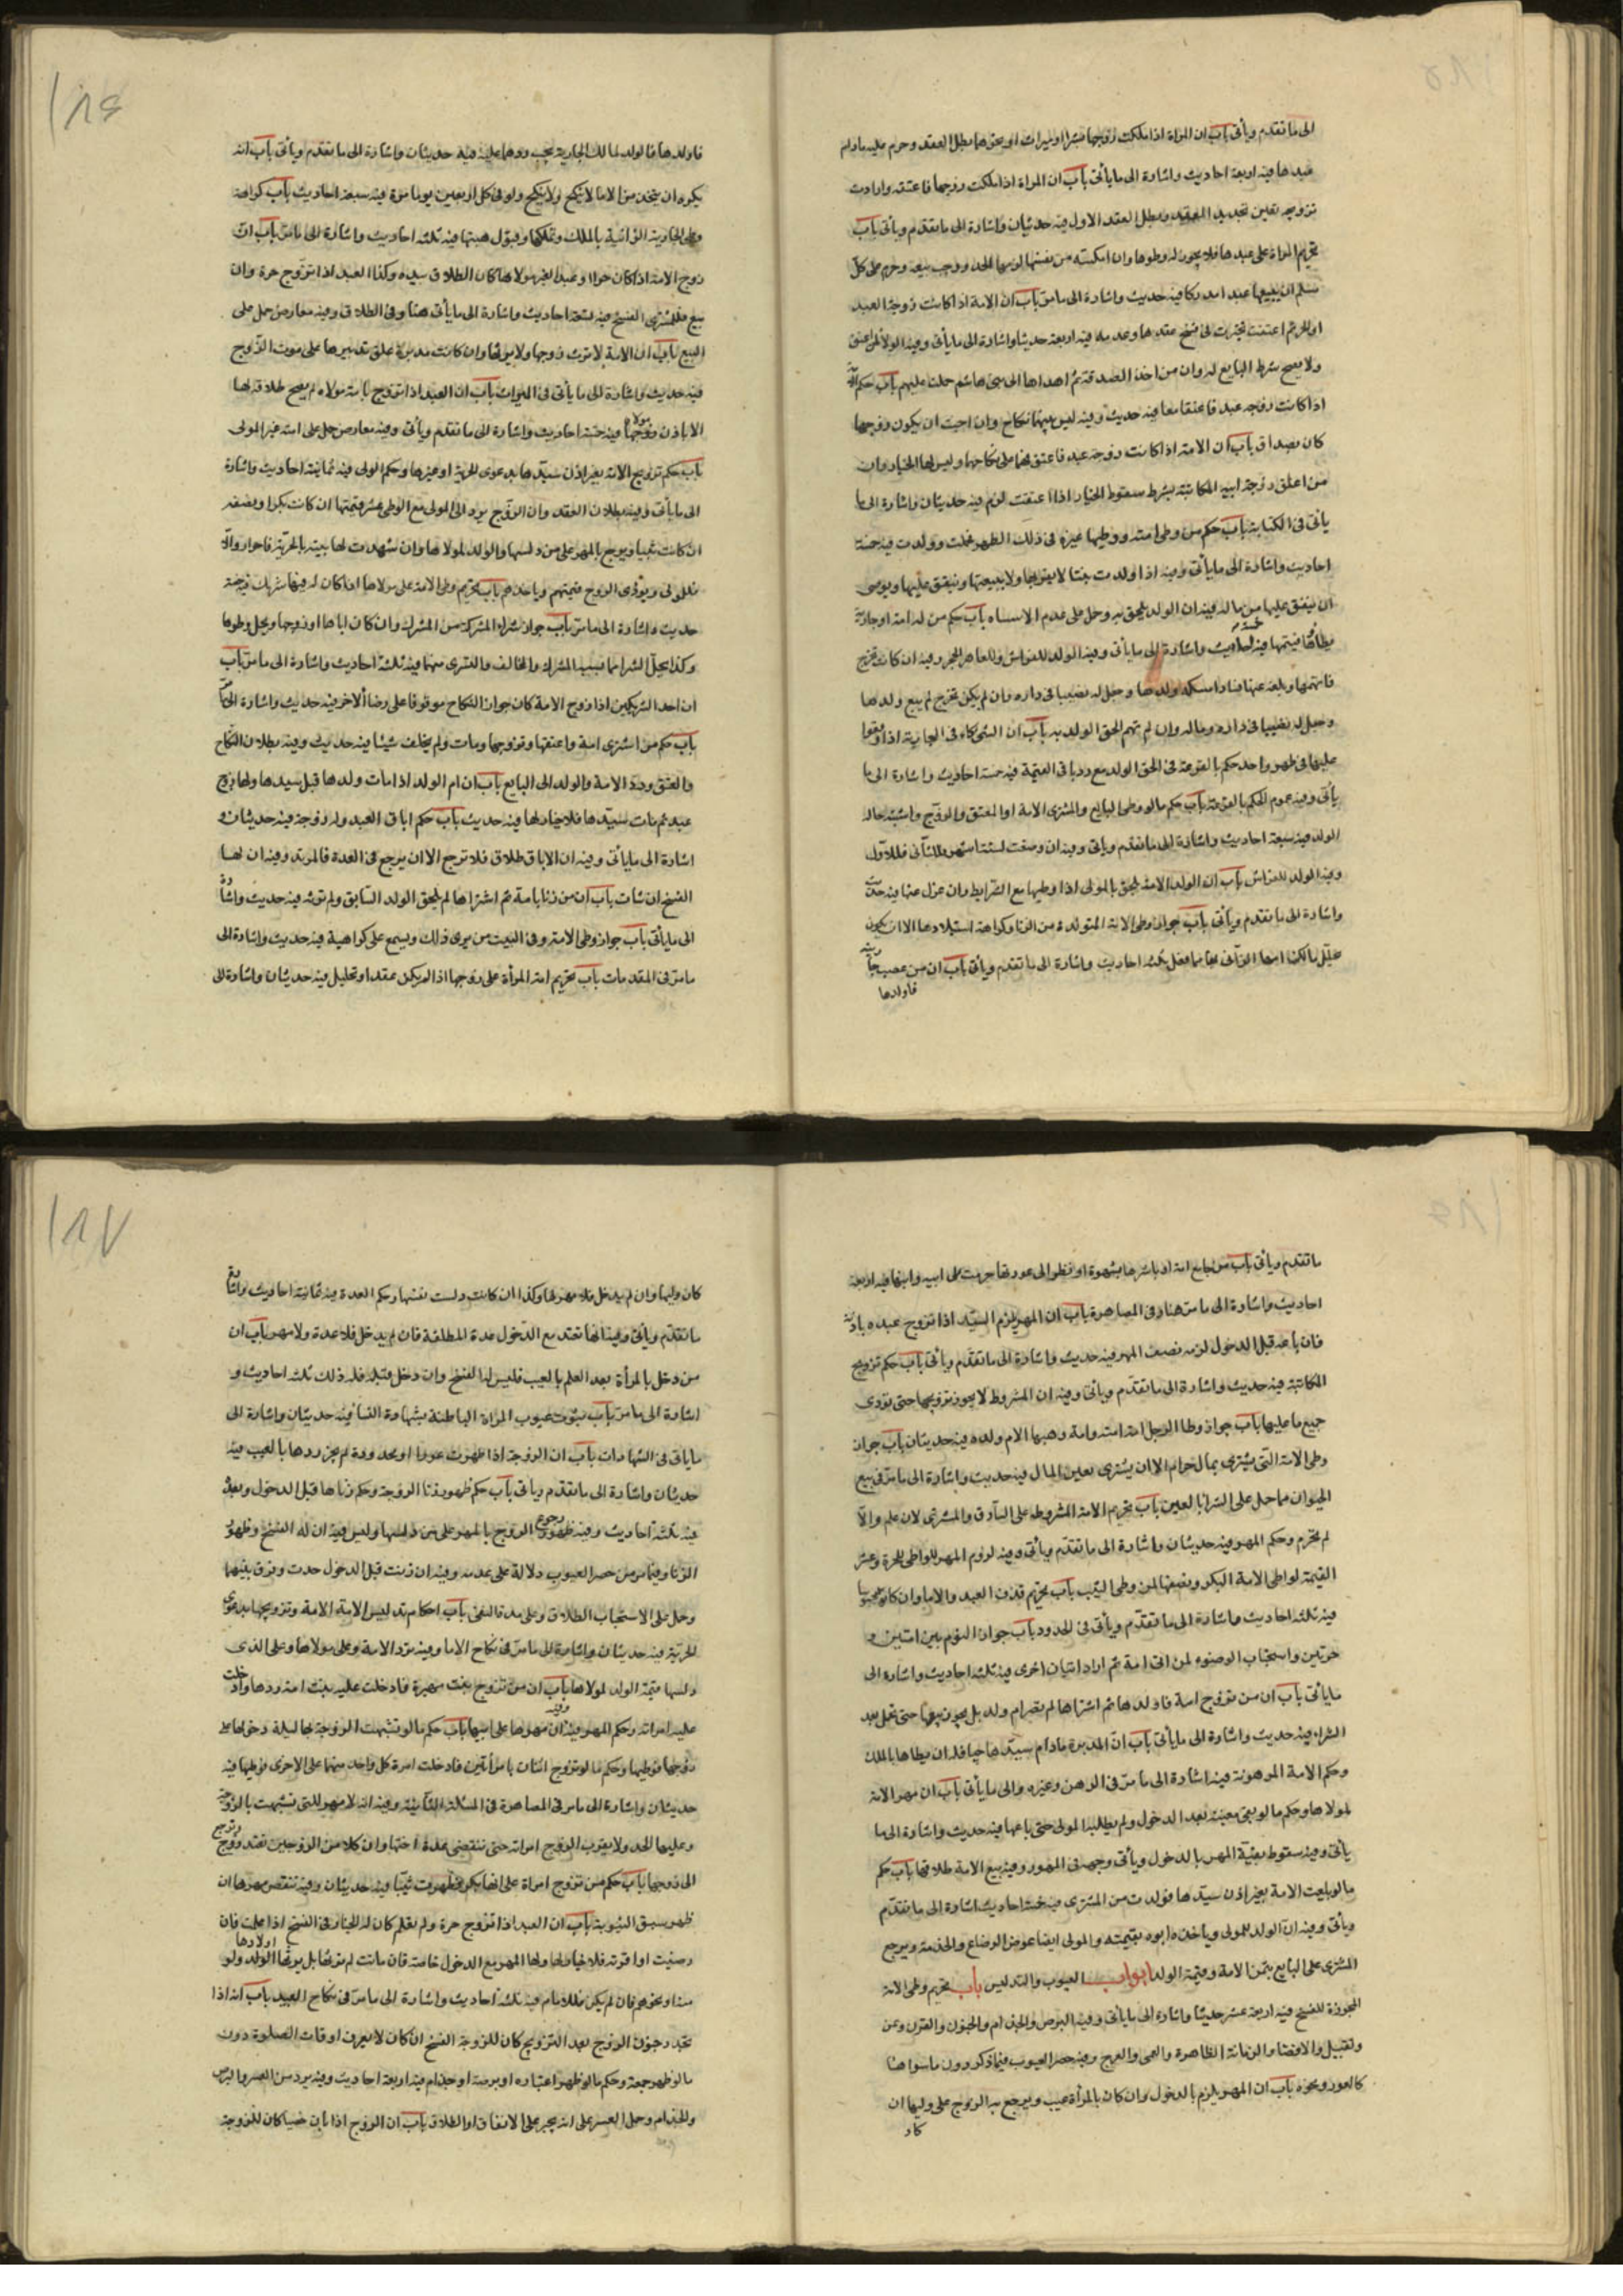 الى ما تقدم ويأتى باب ان المراة اذا ملكت زوجها بشرا او ميراث او نحوهما بطل العقد وحرم عليه مادام
عبدها فيه اربعة احاديث واشارة الى ما يأتى باب ان المراة اذا ملكت زوجها فاعتقته وارادت
تزويجه تعين تجديد العقد وبطل العقد الاول فيه حديثان واشارة الى ما تقدم ويأتى باب
تحريم المراة على عبدها فلا يجوز له وطوها وان امكنته من نفسها لزمها الحد ووجب بيعه وحرم على كل
مسلم ان يبيعها عبدا مدركا فيه حديث واشارة الى ما مر باب ان الامة اذا كانت زوجة العبد
او للحر ثم اعتقت تخيرت فى فسخ عقدها وعدمه فيه اربعة حديثا واشارة الى ما يأتى وفيه الولا لمن اعتق
ولا يصح شرط البايع له وان من اخذ الصدقة ثم اهداها الى بنى هاشم حلت عليهم باب حكم الامة
اذا كانت زوجه عبد فاعتقا معا فيه حديث وفيه ليس بينهما نكاح وان احبت ان يكون زوجها
كان بصداق باب ان الامة اذا كانت زوجة عبد فاعتق فهما على نكاحهما وليس لها الخيار وان
من اعتق زوجة ابيه المكاتبة بشرط سقوط الخيار اذا اعتقت لزم فيه حديثان واشارة الى ما
يأتى فى الكتابة باب حكم من وطى امته ووطيها غيره فى ذلك الطهر فحملت وولدت فيه خمسة
احاديث واشارة الى ما يأتى وفيه اذا ولدت بنتا لا يقربها ولا يبيعها وينفق عليها ويوصى
ان ينفق عليها من ماله وفيه ان الولد يلحق به وحمل على عدم الاسباه باب حكم من له امة او جارية
يطأها فيتهمها فيه خمسة احاديث واشارة الى ما يأتى وفيه الولد للفراش وللعاهر الحجر وفيه ان كانت تخرج
فاتهمها وجعل له نصيبا فى داره وان لم يكن تخرج لم يبع ولدها
وجعل له نصيبا فى داره وماله وان لم يتهم الحق الولد به باب ان الشركاء فى الجارية اذا وقعوا
عليها فى طهر واحد حكم بالقرعة فى الحق الولد مع رد باقى القيمة فيه خمسة احاديث واشارة الى ما
يأتى وفيه عموم الحكم بالقرعة باب حكم ما لو وطى البايع والمشترى الامة او المعتق والزوج واشتبه حال
الولد فيه سبعة احاديث واشارة الى ما تقدم ويأتى وفيه ان وضعت لستة اشهر فللثانى فللاول
وفيه الولد للفراش باب ان الولد الامة يلحق بالمولى اذا وطيها مع الشرايط وان عزل عنها فيه حديث
واشارة الى ما تقدم ويأتى باب جواز وطى الامة المتولدة من الزنا وكراهة استيلادها الا ان يكون
يحلل مالك امها الزانى بها مما فعل فيه ثلثة احاديث واشارة الى ما تقدم ويأتى باب ان من غصب جارية
فاولدها
فاولدها فالولد لمالك الجارية ويجب ردهما عليه فيه حديثان واشارة الى ما تقدم ويأتى باب انه
يكره ان يتخذ من الاما ما لا ينكح ولا ينكح ولو فى كل اربعين يوما مرة فيه سبعة احاديث باب كراهة
وطى الجارية الزانية بالملك وتملكها وقبول هبتها فيه ثلثة احاديث واشارة الى ما مر باب ان
زوج الامة اذا كان حرا او عبدا لغير مولاها كان الطلاق بيده وكذا العبد اذا تزوج حرة وان
بيع فللمشترى الفسخ فيه تسعة احاديث واشارة الى ما يأتى هنا وفى الطلاق وفيه معارض حمل على
البيع باب ان الامة لا ترث زوجها ولا يرثها وان كانت مدبرة علق تدبيرها على موت الزوج
فيه حديث واشارة الى ما يأتى فى الميراث باب ان العبد اذا تزوج بامة مولاه لم يصح طلاقه لها
الا باذن مولاه فيه خمسة احاديث واشارة الى ما تقدم ويأتى وفيه معارض حمل على امة غير المولى
باب حكم تزويج الامة بغير اذن سيدها بدعوى الحرية او غيرها وحكم المولى فيه ثمانية احاديث واشارة
الى ما يأتى وفيه بطلان العقد وان الزوج يرد الى المولى مع الوطى عشر قيمتها ان كانت بكرا ونصفه
ان كانت ثيبا ويرجع بالمهر على من دلسها والولد لمولاها وان شهدت لها بينة بالحرية فاحرار والا
فللمولى ويؤدى الزوج قيمتهم وياخذهم باب تحريم وطى الامة على مولاها اذا كان له فيها شريك فيه خمسة
حديث واشارة الى ما مر باب جواز شراء المشركة من المشرك وان كان اباها او زوجها ويحل وطوها
وكذا يحل الشرا مما سبيه المشرك والمخالف والتسرى منهما فيه ثلثة احاديث واشارة الى ما مر باب
ان احد الشريكين اذا زوج الامة كان جواز النكاح موقوفا على رضا الاخر فيه حديث واشارة الى ما مر
باب حكم من اشترى امة واعتقها وتزوجها ومات ولم يخلف شيئا فيه حديث وفيه بطلان النكاح
والعتق ورد الامة والولد الى البايع باب ان ام الولد اذا مات ولدها قبل سيدها ولها زوج
عبد ثم مات سيدها فلا خيار لها فيه حديث باب حكم اباق العبد وله زوجة فيه حديثان و
اشارة الى ما يأتى وفيه ان الاباق طلاق فلا ترجع الا ان يرجع فى العدة فالمرتد وفيه ان لها
الفسخ ان شات باب ان من زنا بامة ثم اشتراها لم يلحق الولد السابق ولم ترثه فيه حديث واشارة
الى ما يأتى باب جواز وطى الامة وفى البيت من يرى ذلك ويسمع على كراهية فيه حديث واشارة الى
ما مر فى المقدمات باب تحريم امة المرأة على زوجها اذا لم يكن عقد او تحليل فيه حديثان واشارة الى
ما تقدم ويأتى باب من جامع امة او باشرها بشهوة او نظر الى عورتها حرمت على ابيه وابنها فيه اربعة
احاديث واشارة الى ما مر هنا وفى المصاهرة باب ان المهر يلزم السيد اذا تزوج عبده باذنه
فان باعه قبل الدخول لزمه نصف المهر فيه حديث واشارة الى ما تقدم ويأتى باب حكم تزويج
المكاتبة فيه حديث واشارة الى ما تقدم ويأتى وفيه ان المشروط لا يجوز تزويجها حتى تؤدى
جميع ما عليها باب جواز وطا الرجل امة امته وامة وهبها لام ولده فيه حديثان باب جواز
وطى الامة التى يشترى بمال حرام الا ان يشترى بعين المال فيه حديث واشارة الى ما مر فى بيع
الحيوان مما حمل على الشرا بالعين باب تحريم الامة المشروط على السارق والمشترى لان علم والا
لم تحرم وحكم المهر فيه حديثان واشارة الى ما تقدم ويأتى وفيه لزوم المهر للواطى للحرة وعشر
القيمة لواطى الامة البكر ونصفها لمن وطى الثيب باب تحريم قذف العبد والاما وان كانوا
فيه ثلثة احاديث واشارة الى ما تقدم ويأتى فى الحدود باب جواز النوم بين امتين و
حرتين واستحباب الوضوء لمن اتى امة ثم اراد اتيان اخرى فيه ثلثة احاديث واشارة الى
ما يأتى باب ان من تزوج امة فاولدها ثم اشتراها لم تصر ام ولد بل يجوز بيعها حتى تحمل بعد
الشراء فيه حديث واشارة الى ما يأتى باب ان المدبرة مادام سيدها حيا فله ان يطاها بالملك
وحكم الامة المرهونة فيه اشارة الى ما مر فى الرهن وغيره والى ما يأتى باب ان مهر الامة
لمولاها وحكم ما لو بقى بعضه بعد الدخول ولم يطلبه المولى حتى باعها فيه حديث واشارة الى ما
يأتى وفيه سقوط بقية المهر بالدخول ويأتى وجهه فى المهور وفيه بيع الامة طلاقها باب حكم
ما لو بيعت الامة بغير اذن سيدها فولدت من المشترى فيه خمسة احاديث اشارة الى ما تقدم
ويأتى وفيه ان الولد للمولى وياخذه ابوه بقيمته وللمولى ايضا عوض الرضاع والخدمة ويرجع
المشترى على البايع بثمن الامة وقيمة الولد ابواب العيوب والتدليس باب تحريم وطى الامة
المجوزة للفسخ فيه اربعة عشر حديثا واشارة الى ما يأتى وفيه البرص والجذام والجنون والقرن وعن
وتقبيل والافضا والزمانة الظاهرة والعمى والعرج وفيه حصر العيوب فيما ذكر دون ما سواها
كالعور ونحوه باب ان المهر يلزم بالدخول وان كان بالمرأة عيب ويرجع به الزوج على وليها ان
كان
كان وليها وان لم يدخل فلا مهر لها وكذا ان كانت دلست نفسها وحكم العدة فيه ثمانية احاديث واشارة
ما تقدم ويأتى وفيه انها تعتد مع الدخول عدة المطلقة فان لم يدخل فلا عدة ولا مهر باب ان
من دخل بالمرأة بعد العلم بالعيب فليس له الفسخ وان دخل قبله فله ذلك فيه ثلثة احاديث و
اشارة الى ما مر باب ثبوت عيوب المراة الباطنة بشهادة النسا فيه حديثان واشارة الى
ما ياتى فى الشهادات باب ان الزوجة اذا ظهرت عورا او محدودة لم يجز ردها بالعيب فيه
حديثان واشارة الى ما تقدم وياتى باب حكم ظهور زنا الزوجة وحكم زناها قبل الدخول وبعده
فيه ثلثة احاديث وفيه رجوع الزوج بالمهر على من دلسها وليس فيه ان له الفسخ وظهور
الزنا وفيما مر من حصر العيوب دلالة على عدمه وفيه ان زنت قبل الدخول حدت وفرق بينهما
وحمل على الاستحباب الطلاق وعلى مدة النفى باب احكام تدليس الامة الامة وتزويجها بدعوى
الحرية فيه حديثان واشارة الى ما مر فى نكاح الاما وفيه ترد الامة وعلى مولاها وعلى الذى
دلسها قيمة الولد لمولاها باب ان من تزوج بنت مهيرة فادخلت عليه بنت امة ردها وادخلت
عليه امراته وحكم المهر وفيه ان مهرها على ابيها باب حكم ما لو تشبهت الزوجة بها ليلة دخولها على
زوجها فوطيها وحكم ما لو تزوج اثنان بامرأتين فادخلت امرة كل واحد منهما على الاخرى فوطيها فيه
حديثان واشارة الى ما مر فى المصاهرة فى المسئلة الثانية وفيه انه لا مهر للتى تشبهت بالزوجة
وعليها الحد ولا يقرب الزوج امراته حتى تنقضى عدة اختها وان كلا من الزوجين تعتد وترجع
الى زوجها باب حكم من تزوج امراة على انها بكر فظهرت ثيبا فيه حديثان وفيه تنقص مهرها ان
ظهر سبق الثيوبة باب ان العبد اذا تزوج حرة ولم تعلم كان له الخيار فى الفسخ اذا علمت فان
رضيت او اقرته فلا خيار لها ولها المهر مع الدخول خاصة فان ماتت لم يرثها بل يرثها اولادها ولو
منه او نحوهم فان لم يكن فللامام فيه ثلثة احاديث واشارة الى ما مر فى نكاح العبيد باب انه اذا
تجدد جنون الزوج بعد التزويج كان للزوجة الفسخ ان كان لا يعرف اوقات الصلوة دون
ما لو ظهر جمعه وحكم ما لو ظهر اعتباره او برصه او جذام فيه اربعة احاديث وفيه يرد من العسر والبرص
والجذام وحمل العسر على انه يجبر على الانفاق او الطلاق باب ان الزوج اذا بان خصيا كان للزوجة